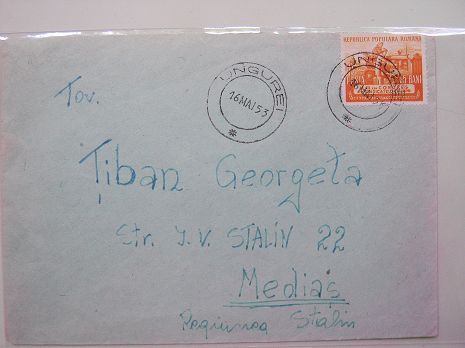 REPUBLICA POPULARA ROMANA
BANI
UNGUREI
16 MAI 53
UNGUREI
Tov.
Țiban Georgeta
Str. I. V. STALIN 22
Mediaș
Regiunea Stalin